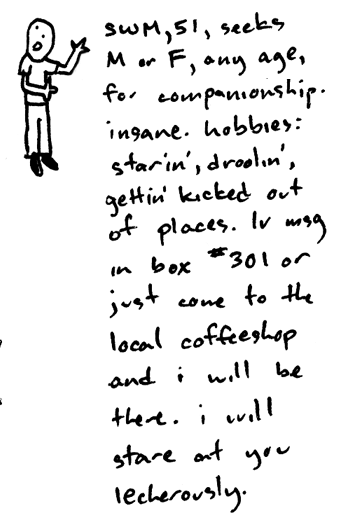 SWM, 51, seeks
M or F, any age,
for companionship.
insane. hobbies:
starin', droolin',
gettin' kicked out
of places. lv msg
in box #301 or
just come to the
local coffeeshop
and i will be
there. i will
stare at you
lecherously.